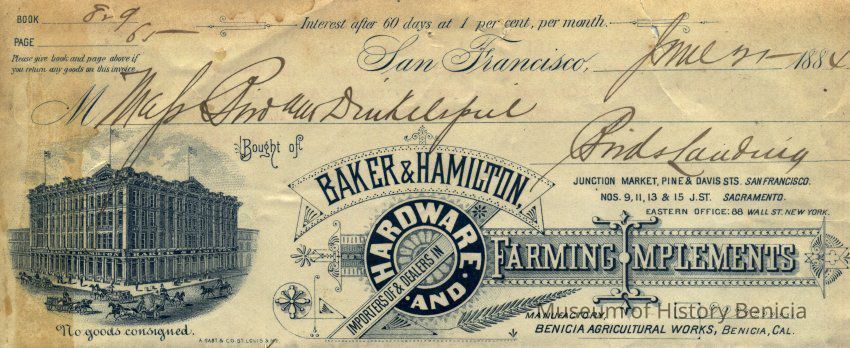 BOOK 829
PAGE 65
Interest after 60 days at 1 per cent, per month.
Please give book and page above if
you return any goods on this invoice
San Francisco, June 21 1884
M Mess Bird and Dinkelspiel
Birds Landing
Bought of
BAKER & HAMILTON,
IMPORTERS OF & DEALERS IN
HARDWARE AND
FARMING IMPLEMENTS
JUNCTION MARKET, PINE & DAVIS STS. SAN FRANCISCO.
NOS. 9, 11, 13 & 15 J. ST. SACRAMENTO.
EASTERN OFFICE: 88 WALL ST. NEW YORK.
MANUFACTORY,
BENICIA AGRICULTURAL WORKS, BENICIA, CAL.
No goods consigned.
A. GAST & CO. ST. LOUIS
Museum of History Benicia